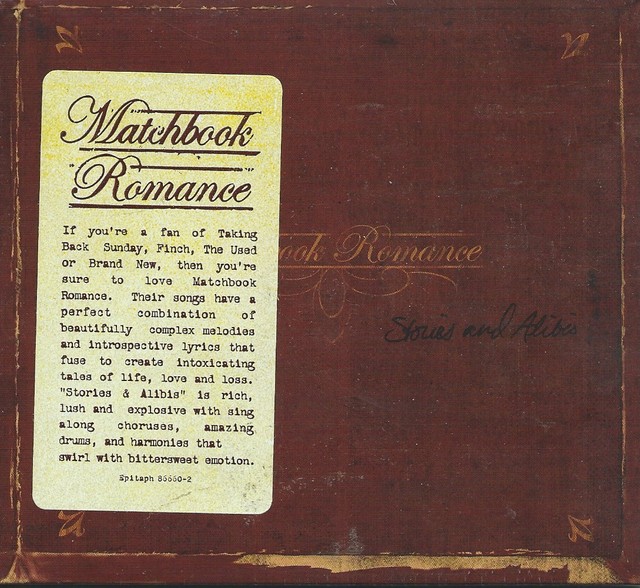 Matchbook
Romance
If you're a fan of Taking
Back Sunday, Finch, The Used
or Brand New, then you're
sure to love Matchbook
Romance. Their songs have a
perfect combination of
beautifully complex melodies
and introspective lyrics that
fuse to create intoxicating
tales of life, love and loss.
"Stories & Alibis" is rich,
lush and explosive with sing
along choruses, amazing
drums, and harmonies that
swirl with bittersweet emotion.
Epitaph 86660-2
ook Romance
Stories and Alibis